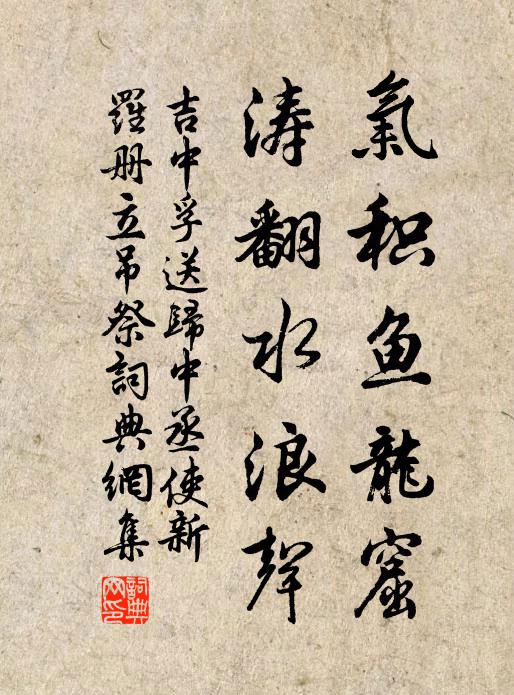 氣积鱼龍窟
涛翻水浪聲
吉中孚送歸中丞使新
羅册立吊祭詞典網集
詞典
网印